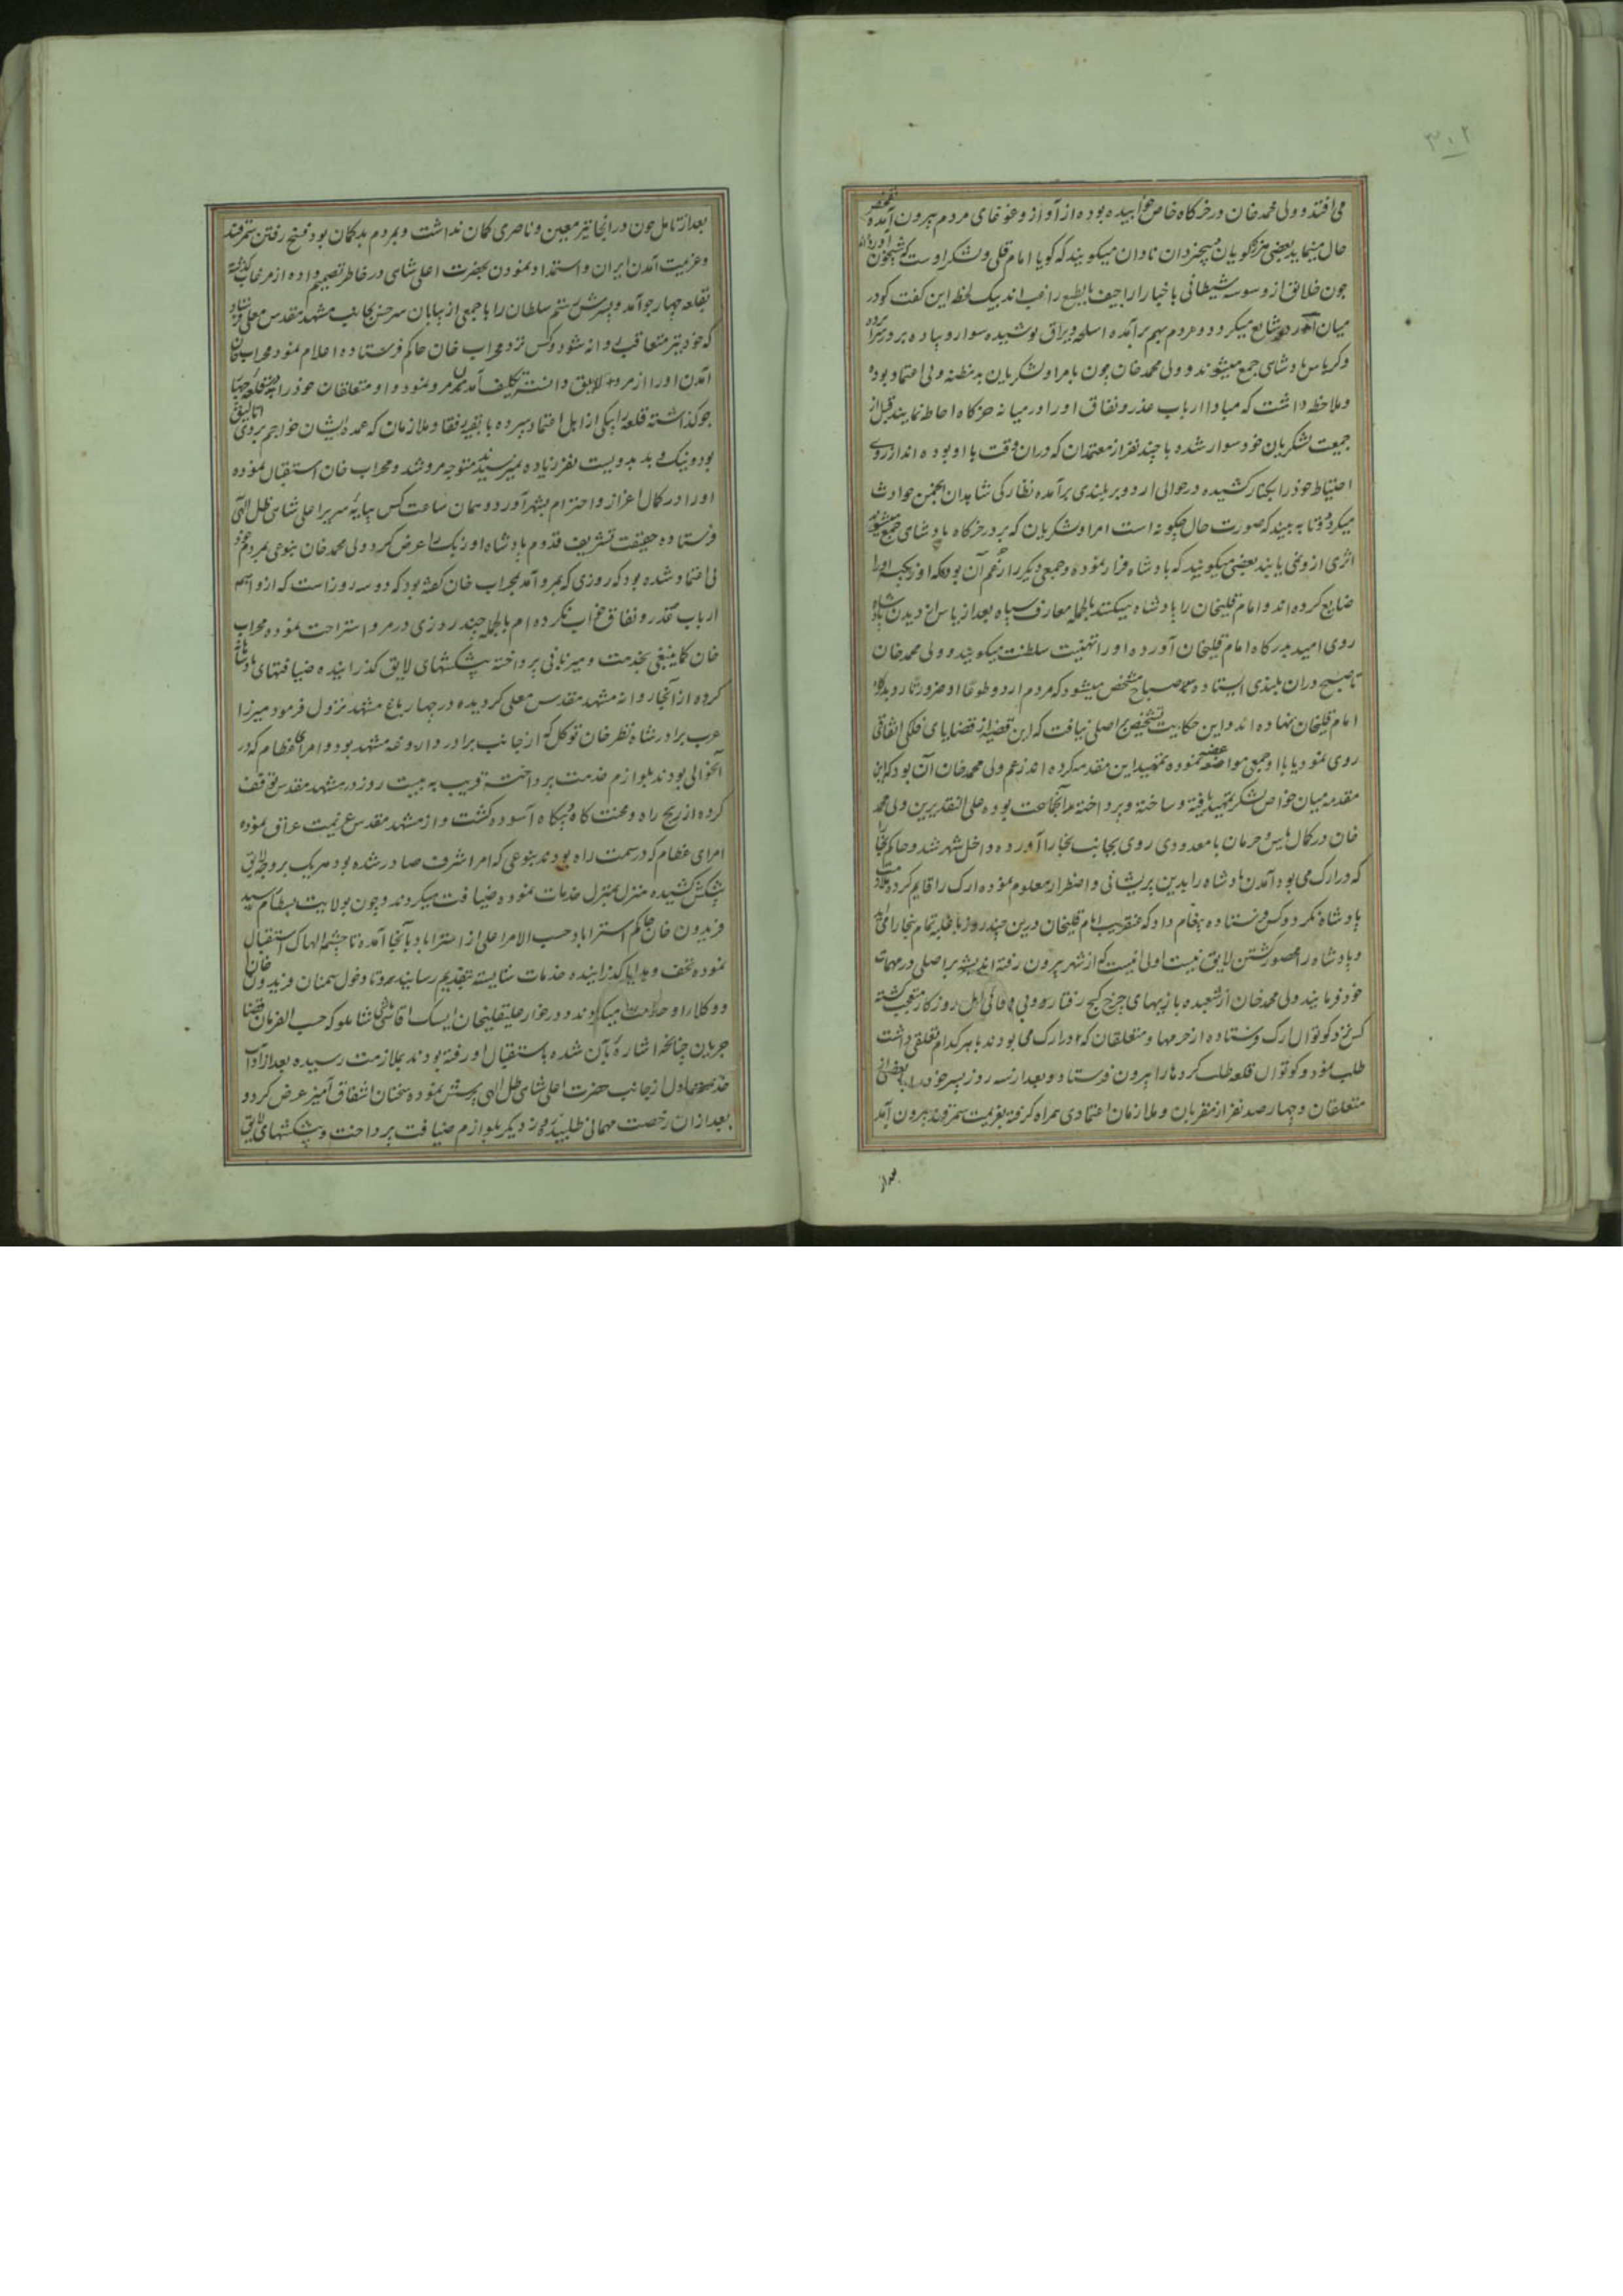 ۳۰۲
می افتد و ولی محمد خان در خرکاه خاص خوابیده بوده از آواز و غوغای مردم بیرون آمده تفحص
حال مینماید بعضی هرزه کویان بیخردان نادان میکویند که کویا امام قلی و لشکر اوست که شبیخون آورده اند
چون خلایق از وسوسه شیطانی باخبار اراجیف بالطبع راغب اند بیک لحظه این کفت کو در
میان اردو شایع میکردد و مردم بهم برآمده اسلحه و یراق پوشیده سوار و پیاده بر در سراپرده
و کریاس پادشاهی جمع میشوند و ولی محمد خان چون بامرا و لشکریان بد مظنه و بی اعتماد بوده
و ملاحظه داشت که مبادا ارباب غدر و نفاق او را در میانه خرکاه احاطه نمایند قبل از
جمعیت لشکریان خود سوار شده با چند نفر از معتمدان که دران وقت با او بوده اند از روی
احتیاط خود را بکنار کشیده در حوالی اردو بر بلندی برآمده نظارکی شاهدان انجمن حوادث
میکردد تا به بیند که صورت حال چکونه است امرا و لشکریان که بر در خرکاه پادشاهی جمع میشوند
اثری ازو نمی یابند بعضی میکویند که پادشاه فرار نموده و جمعی دیکر را زعم آن بود که اوزبکیه او را
ضایع کرده اند و امام قلیخان را پادشاه میکنند بالجمله معارف سپاه بعد از یاس از دیدن پادشاه
روی امید بدرکاه امام قلیخان آورده او را تهنیت سلطنت میکویند و ولی محمد خان
تا صبح دران بلندی ایستاده صباح مشخص میشود که مردم اردو طوعا او ضرورتا رو بدرکاه
امام قلیخان نهاده اند و این حکایت تشخیص بر اصلی نیافت که این قضیه از قضایای فلکی اتفاقی
روی نمود یا با او جمعی مواضعه نموده بتمهید این مقدمه کرده اند زعم ولی محمد خان آن بود که این
مقدمه میان خواص لشکر تمهید یافته و ساخته و پرداخته آنجماعت بوده علی التقدیرین ولی محمد
خان در کمال یاس و حرمان با معدودی روی بجانب بخارا آورده و داخل شهر شد و حاکم بخارا
که در ارک می بود آمدن پادشاه را بدین پریشانی و اضطرار معلوم نموده ارک را قایم کرد
پادشاه نکرد و کس فرستاده پیغام داد که عنقریب امام قلیخان درین چند روز با غلبه تمام ببخارا می آید
و پادشاه را محصور کشتن لایق نیست اولی انیست که از شهر بیرون رفته اندیشه بر اصلی در مهمات
خود فرمایند ولی محمد خان از شعبده بازیهای چرخ کج رفتار و بی وفائی اهل روزکار متعجب کشته
کس نزد کوتوال ارک فرستاده از حرمها و متعلقان که در ارک می بودند با هر کدام تعلقی داشت
طلب نمود و کوتوال قلعه طلب کردها را بیرون فرستاد و بعد از سه روز پسر خود را با بعضی از
متعلقان و چهار صد نفر از مقربان و ملازمان اعتمادی همراه کرفته بعزیمت سمرقند بیرون آمد
بعد از
بعد از تامل چون در انجا نیز معین و ناصری کمان نداشت و بمردم بدکمان بود فسخ رفتن سمرقند
و عزیمت آمدن ایران و استمداد نمودن بحضرت اعلی شاهی در خاطر تصمیم داده از مرغاب کذشته
بقلعه چهارجو آمد و پسرش رستم سلطان را با جمعی از بیابان سرخس بجانب مشهد مقدس معلی فرستاد
که خود نیز متعاقب روانه شود و کس نزد محراب خان حاکم فرستاده اعلام نمود محراب خان
آمدن او را از مرو لایق دانسته تکلیف آمدن مرو نمود و او متعلقان خود را در قلعه چهار
جو کذاشته قلعه را بیکی از اهل اعتماد سپرده با بقیه رفقا و ملازمان که عمده ایشان خواجم بردی اتالیق
بود و نیک و بد بدویست نفر زیاده نمیرسیدند متوجه مرو شد و محراب خان استقبال نموده
او را در کمال اعزاز و احترام بشهر آورد و همان ساعت کس بپایه سریر اعلی شاهی ظل الهی
فرستاده حقیقت تشریف قدوم پادشاه اوزبک را عرض کرد ولی محمد خان بنوعی بمردم خود
بی اعتماد شده بود که روزی که بمرو آمد بمحراب خان کفته بود که دو سه روز است که از واهمه
ارباب غدر و نفاق خواب نکرده ام بالجمله چند روزی در مرو استراحت نموده محراب
خان کما ینبغی بخدمت و میزبانی پرداخته پیشکشهای لایق کذرانیده ضیافتهای پادشاهانه
کرده از آنجا روانه مشهد مقدس معلی کردیده در چهارباغ مشهد نزول فرمود میرزا
عرب برادر شاه نظر خان توکلی که از جانب برادر داروغه مشهد بود و امرای عظام که در
آنحوالی بودند بلوازم خدمت پرداخته قریب به بیست روز در مشهد مقدس توقف
کرده از رنج راه و محنت کاه و بیکاه آسوده کشت و از مشهد مقدس عزیمت عراق نموده
امرای عظام که در سمت راه بودند بنوعی که امر اشرف صادر شده بود هر یک بروجه لایق
پیشکش کشیده منزل بمنزل خدمات نموده ضیافت میکردند و چون بولایت بسطام رسید
فریدون خان حاکم استراباد حسب الامر اعلی از استراباد بآنجا آمده تا چشمه الهاک استقبال
نموده تحف و هدایا کذرانیده خدمات شایسته بتقدیم رسانید و تا دخول سمنان فریدون خان
و وکلا را و خدمت میکردند و در خوار علیقلیخان ایشک اقاسی شاملو که حسب الفرمان قضا
جریان چنانچه اشاره بآن شده باستقبال او رفته بودند بملازمت رسیده بعد از آداب
خدمت اول از جانب حضرت اعلی شاهی ظل الهی پرسش نموده سخنان اشفاق آمیز عرض کرد و
بعد از ان رخصت مهمانی طلبیده روز دیکر بلوازم ضیافت پرداخت و پیشکشهای لایق